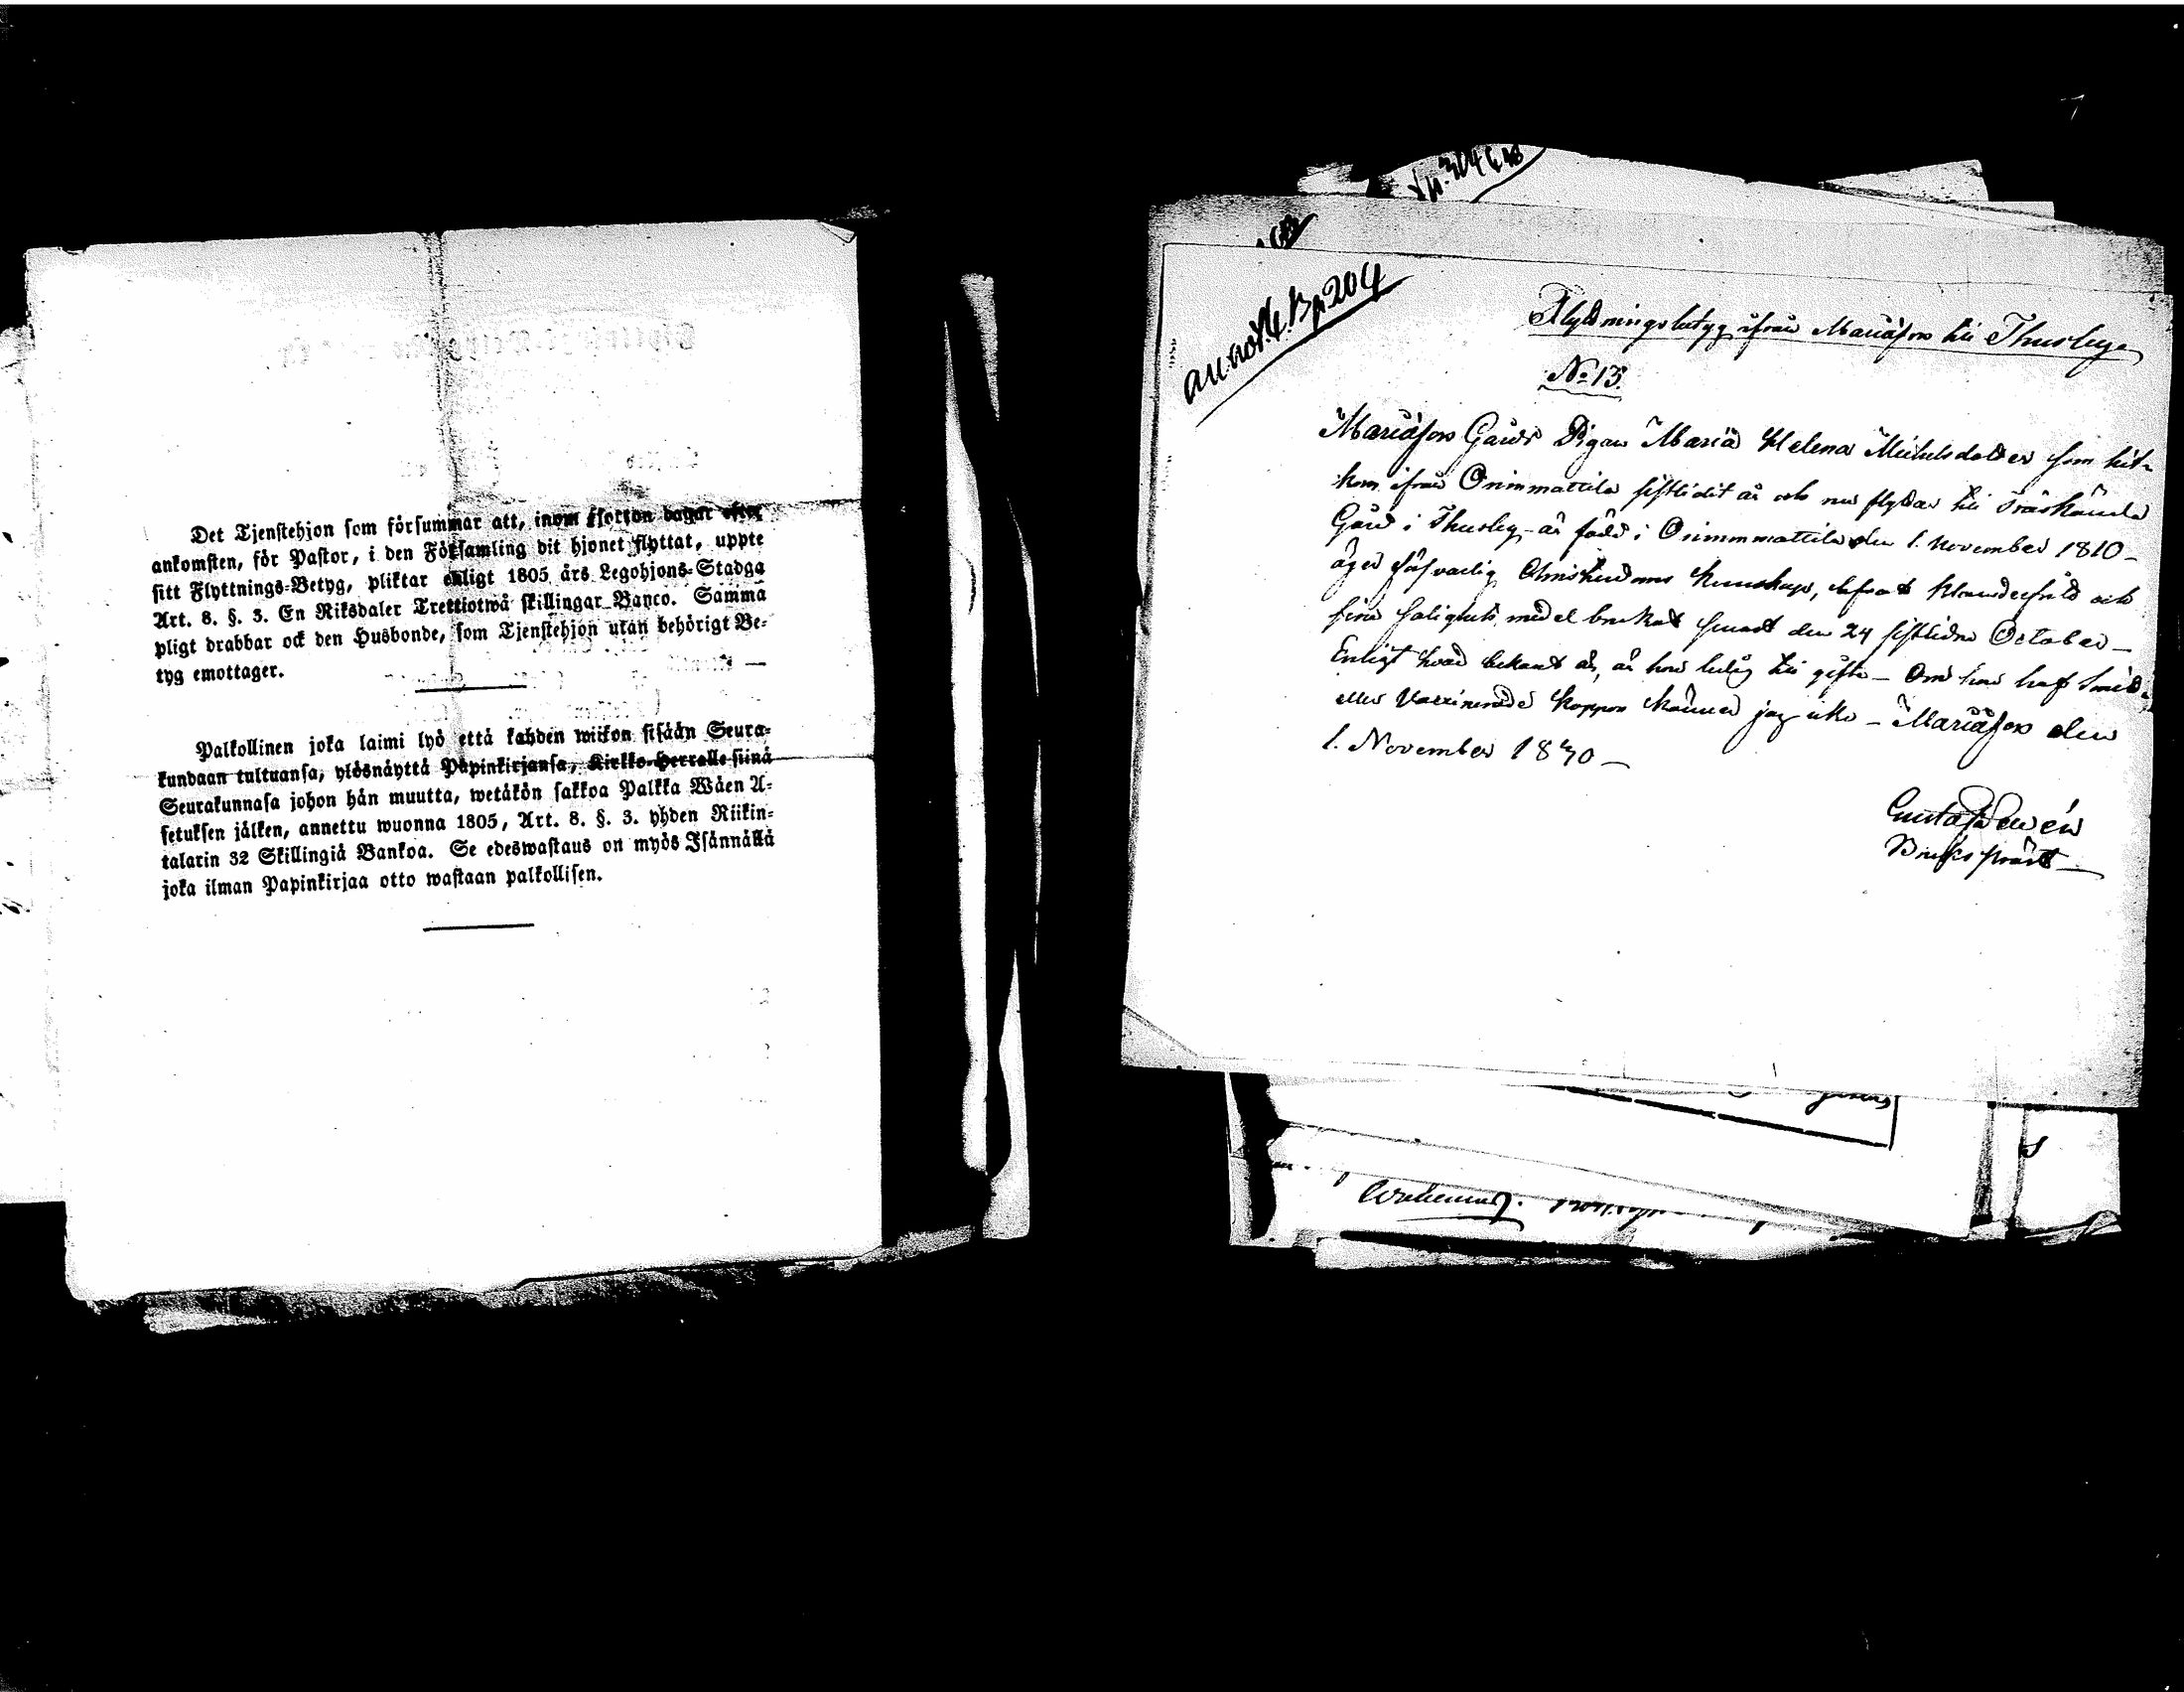 Det Tjenstehjon som försummar att, inom fjorton dagar efter
ankomsten, för Pastor, i den Församling dit hjonet flyttat, uppte
sitt Flyttnings-Betyg, pliktar enligt 1805 års Legohjons-Stadga
Art. 8. §. 3. En Riksdaler Trettiotwå skillingar Banco. Samma
pligt drabbar ock den Husbonde, som Tjenstehjon utan behörigt Be-
tyg emottager.
Palkollinen joka laimi lyö että kahden wiikon sisään Seura-
kundaan tultuansa, ylösnäyttä Papinkirjansa, Kirkko-Herralle siinä
Seurakunnasa johon hän muutta, wetäkön sakkoa Palkka Wäen A-
setuksen jälken, annettu wuonna 1805, Art. 8. §. 3. yhden Riikin-
talarin 32 Skillingiä Bankoa. Se edeswastaus on myös Isännällä
joka ilman Papinkirjaa otto wastaan palkollisen.
p. 204
Flyttningsbetyg ifrån Mariäfors till Thusby
No 13.
Mariäfors Gårds Pigan Maria Helena Michelsdotter som hit-
kom ifrån Orimmattila sistlidit år och nu flyttar till Träskända
Gård i Thusby är född i Orimmmattila den 1. November 1810 -
äger försvarlig Christendoms kunskap, befrat och
sina salighets medel brukat senast den 24 sistlidne October -
Enligt hvad bekant är, är hon ledig till gifte - Om hon haft
eller Vaccinerade koppor känner jag icke - Mariäfors den
1. November 1840 -
Gustaf
Bruks prest